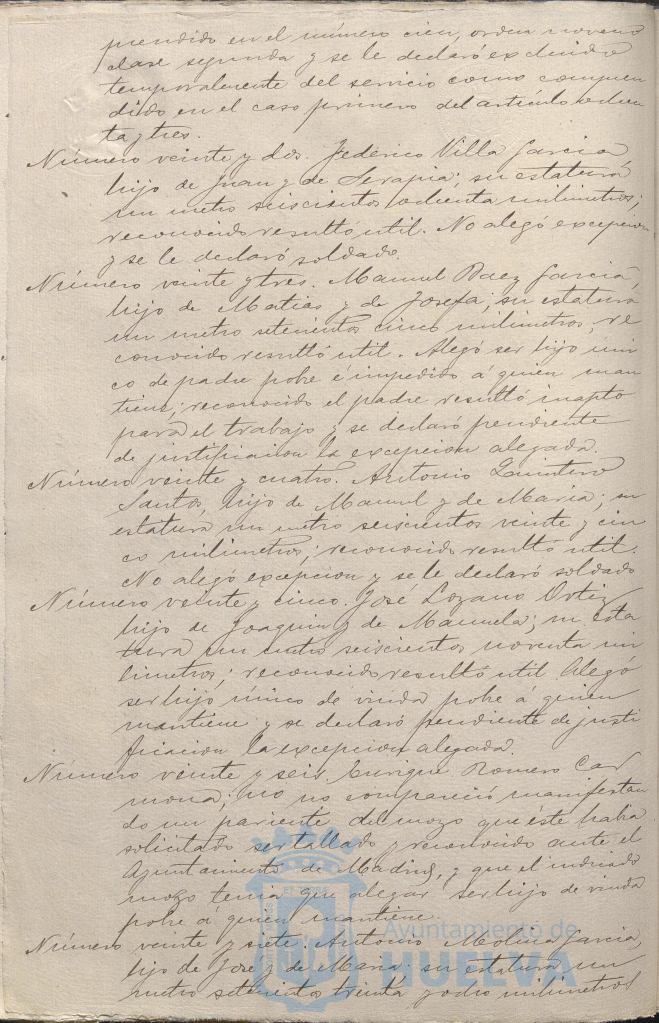 prendido en el número cien, orden noveno
clase segunda y se le declaró excluido
temporalmente del servicio como compren
dido en el caso primero del artículo ochen
ta y tres.
Número veinte y dos. Federico Villa Garcia
hijo de Juan y de Serapia; su estatura
un metro seiscientos ochenta milimetros;
reconocido resultó util. No alegó excepcion
y se le declaró soldado.
Número veinte y tres. Manuel Baez Garcia,
hijo de Matias y de Josefa; su estatura
un metro setecientos cinco milimetros; re
conocido resultó util. Alegó ser hijo úni
co de padre pobre é impedido á quien man
tiene; reconocido el padre resultó inapto
para el trabajo y se declaró pendiente
de justificacion la excepcion alegada.
Número veinte y cuatro. Antonio Quintero
Santos, hijo de Manuel y de Maria; su
estatura un metro seiscientos veinte y cin
co milimetros; reconocido resultó util.
No alegó excepcion y se le declaró soldado
Número veinte y cinco. José Lozano Ortiz
hijo de Joaquin y de Manuela; su esta
tura un metro seiscientos noventa mi
limetros; reconocido resultó util. Alegó
ser hijo único de viuda pobre á quien
mantiene y se declaró pendiente de justi
ficacion la excepcion alegada.
Número veinte y seis. Enrique Romero Car
mona; no compareció manifestan
do un pariente del mozo que éste habia
solicitado ser tallado y reconocido ante el
Ayuntamiento de Madrid, y que el indicado
mozo tenia que alegar ser hijo de viuda
pobre á quien mantiene.
Número veinte y siete. Antonio Molina Garcia,
hijo de José y de Maria: su estatura un
metro setecientos treinta y ocho milimetros
Ayuntamiento de
HUELVA